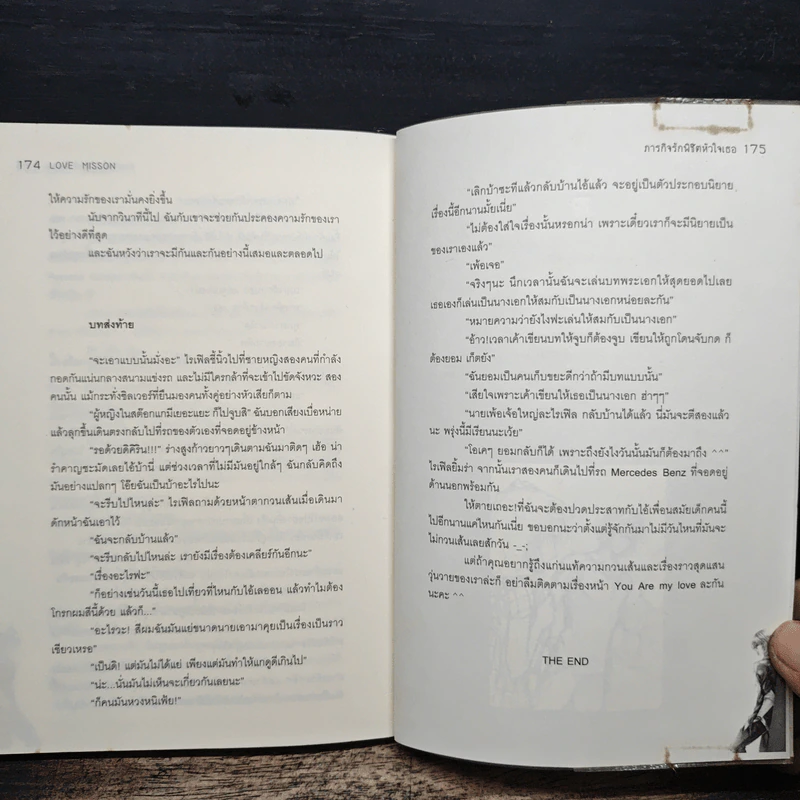 174 LOVE MISSON
ให้ความรักของเรามั่นคงยิ่งขึ้น
นับจากวินาทีนี้ไป ฉันกับเขาจะช่วยกันประคองความรักของเรา
ไว้อย่างดีที่สุด
และฉันหวังว่าเราจะมีกันและกันอย่างนี้เสมอและตลอดไป
บทส่งท้าย
“จะเอาแบบนั้นมั่งอะ” ไรเฟิลชี้นิ้วไปที่ชายหญิงสองคนที่กำลัง
กอดกันแน่นกลางสนามแข่งรถ และไม่มีใครกล้าที่จะเข้าไปขัดจังหวะ สอง
คนนั้น แม้กระทั่งซิลเวอร์ที่ยืนมองคนทั้งคู่อย่างหัวเสียก็ตาม
“ผู้หญิงในสต๊อกแกมีเยอะแยะ ก็ไปจูบสิ” ฉันบอกเสียงเบื่อหน่าย
แล้วลุกขึ้นเดินตรงกลับไปที่รถของตัวเองที่จอดอยู่ข้างหน้า
“รอด้วยดิคิริน!!!” ร่างสูงก้าวยาวๆเดินตามฉันมาติดๆ เฮ้อ น่า
รำคาญชะมัดเลยไอ้บ้านี่ แต่ช่วงเวลาที่ไม่มีมันอยู่ใกล้ๆ ฉันกลับคิดถึง
มันอย่างแปลกๆ โอ๊ยฉันเป็นบ้าอะไรไปนะ
“จะรีบไปไหนล่ะ” ไรเฟิลถามด้วยหน้าตากวนเส้นเมื่อเดินมา
ดักหน้าฉันเอาไว้
“ฉันจะกลับบ้านแล้ว”
“จะรีบกลับไปไหนล่ะ เรายังมีเรื่องต้องเคลียร์กันอีกนะ”
“เรื่องอะไรฟะ”
“ก็อย่างเช่นวันนี้เธอไปเที่ยวที่ไหนกับไอ้เลออน แล้วทำไมต้อง
โกรกผมสีนี้ด้วย แล้วก็...”
“อะไรวะ! สีผมฉันมันแย่ขนาดนายเอามาคุยเป็นเรื่องเป็นราว
เชียวเหรอ”
“เป็นดิ! แต่มันไม่ได้แย่ เพียงแต่มันทำให้แกดูดีเกินไป”
“น่ะ...นั่นมันไม่เห็นจะเกี่ยวกันเลยนะ”
“ก็คนมันหวงหนิเฟ้ย!”
ภารกิจรักพิชิตหัวใจเธอ 175
“เลิกบ้าซะทีแล้วกลับบ้านได้แล้ว จะอยู่เป็นตัวประกอบนิยาย
เรื่องนี้อีกนานมั้ยเนี่ย”
“ไม่ต้องใส่ใจเรื่องนั้นหรอกน่า เพราะเดี๋ยวเราก็จะมีนิยายเป็น
ของเราเองแล้ว”
“เพ้อเจอ”
“จริงๆนะ นึกเวลานั้นฉันจะเล่นบทพระเอกให้สุดยอดไปเลย
เธอเองก็เล่นเป็นนางเอกให้สมกับเป็นนางเอกหน่อยละกัน”
“หมายความว่ายังไงฟะเล่นให้สมกับเป็นนางเอก”
“อ้าว!เวลาเค้าเขียนบทให้จูบก็ต้องจูบ เขียนให้ถูกโดนจับกด ก็
ต้องยอม เก็ตยัง”
“ฉันยอมเป็นคนเก็บขยะดีกว่าถ้ามีบทแบบนั้น”
“เสียใจเพราะเค้าเขียนให้เธอเป็นนางเอก ฮ่าๆๆ”
“นายเพ้อเจ้อใหญ่ละไรเฟิล กลับบ้านได้แล้ว นี่มันจะตีสองแล้ว
นะ พรุ่งนี้มีเรียนนะเว้ย”
“โอเคๆ ยอมกลับก็ได้ เพราะถึงยังไงวันนั้นมันก็ต้องมาถึง ^^”
ไรเฟิลยิ้มร่า จากนั้นเราสองคนก็เดินไปที่รถ Mercedes Benz ที่จอดอยู่
ด้านนอกพร้อมกัน
ให้ตายเถอะ!ที่ฉันจะต้องปวดประสาทกับไอ้เพื่อนสมัยเด็กคนนี้
ไปอีกนานแค่ไหนกันเนี่ย ขอบอกนะว่าตั้งแต่รู้จักกันมาไม่มีวันไหนที่มันจะ
ไม่กวนเส้นเลยสักวัน -_-;
แต่ถ้าคุณอยากรู้ถึงแก่นแท้ความกวนเส้นและเรื่องราวสุดแสน
วุ่นวายของเราล่ะก็ อย่าลืมติดตามเรื่องหน้า You Are my love ละกัน
นะคะ ^^
THE END